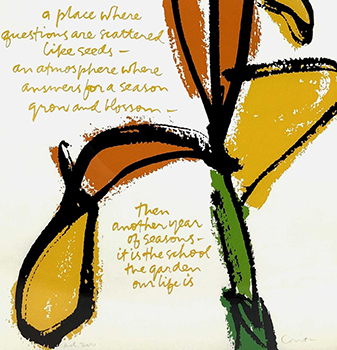 a place where
questions are scattered
like seeds –
an atmosphere where
answers for a season
grow and blossom –
Then
another year
of seasons –
it is the school
the garden
our life is